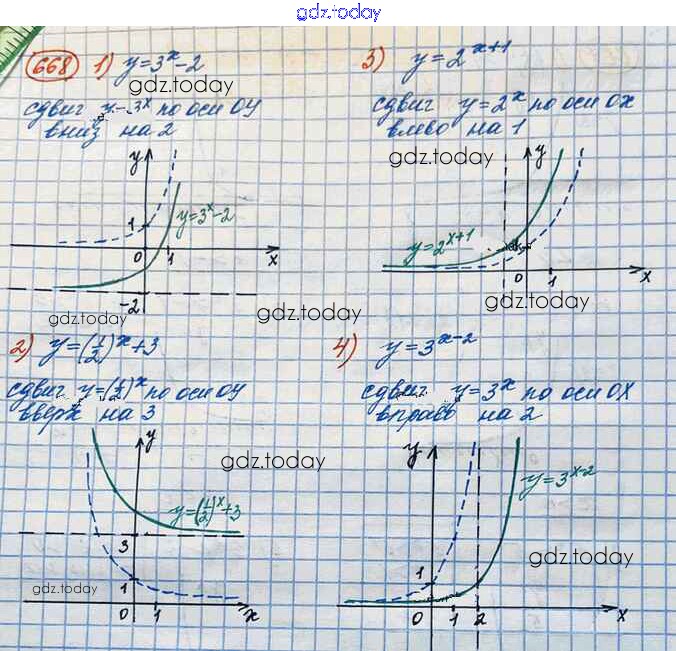 gdz.today
668 1) y=3^x-2
gdz.today
сдвиг y=3^x по оси ОУ
вниз на 2
y
1
y=3^x-2
0 1 x
-2
gdz.today
gdz.today
gdz.today
2) y=(1/2)^x+3
сдвиг y=(1/2)^x по оси ОУ
вверх на 3
y
gdz.today
y=(1/2)^x+3
3
1
gdz.today
0 1 x
3) y=2^x+1
сдвиг y=2^x по оси ОХ
влево на 1
gdz.today
y
y=2^x+1
0 1 x
gdz.today
4) y=3^x-2
сдвиг y=3^x по оси ОХ
вправо на 2
y
y=3^x-2
gdz.today
1
0 1 2 x